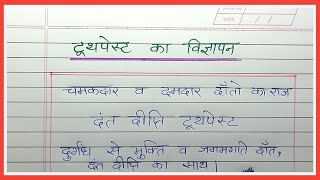 DATE
टूथपेस्ट का विज्ञापन
चमकदार व दमदार दाँतो का राज
दंत दीप्ति टूथपेस्ट
दुर्गंध से मुक्ति व जगमगाते दाँत,
दंत दीप्ति का साथ।